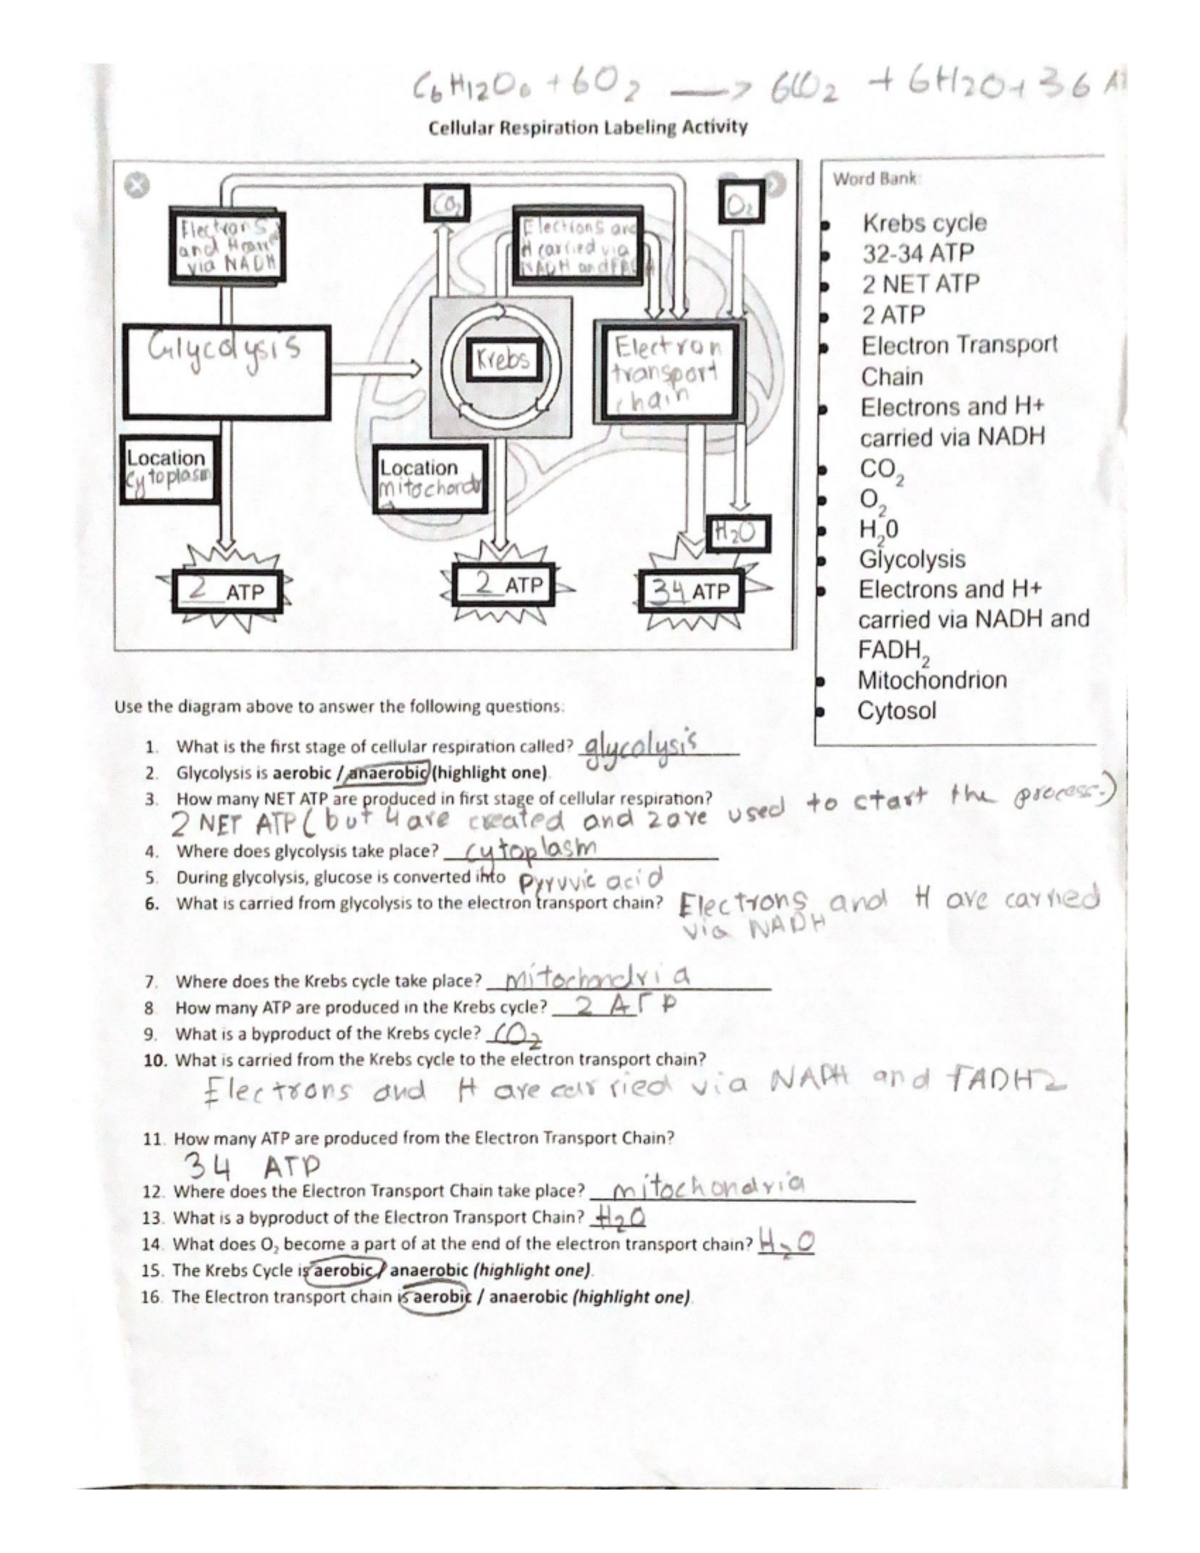 C6H12O6 + 6O2 —> 6CO2 + 6H2O + 36 AT
Cellular Respiration Labeling Activity
Electrons
and H carr
via NADH
CO2
Elections are
H carried via
NADH and FADH
O2
Glycolysis
Krebs
Electron
transport
chain
Location
Cytoplasm
Location
mitochondr
H2O
2 ATP
2 ATP
34 ATP
Word Bank:
• Krebs cycle
• 32-34 ATP
• 2 NET ATP
• 2 ATP
• Electron Transport
Chain
• Electrons and H+
carried via NADH
• CO2
• O2
• H20
• Glycolysis
• Electrons and H+
carried via NADH and
FADH2
• Mitochondrion
• Cytosol
Use the diagram above to answer the following questions:
1. What is the first stage of cellular respiration called? glycolysis
2. Glycolysis is aerobic / anaerobic (highlight one).
3. How many NET ATP are produced in first stage of cellular respiration?
2 NET ATP (but 4 are created and 2 are used to start the process.)
4. Where does glycolysis take place? cytoplasm
5. During glycolysis, glucose is converted into pyruvic acid
6. What is carried from glycolysis to the electron transport chain? Electrons and H are carried
via NADH
7. Where does the Krebs cycle take place? mitochondria
8. How many ATP are produced in the Krebs cycle? 2 ATP
9. What is a byproduct of the Krebs cycle? CO2
10. What is carried from the Krebs cycle to the electron transport chain?
Electrons and H are carried via NADH and FADH2
11. How many ATP are produced from the Electron Transport Chain?
34 ATP
12. Where does the Electron Transport Chain take place? mitochondria
13. What is a byproduct of the Electron Transport Chain? H2O
14. What does O2 become a part of at the end of the electron transport chain? H2O
15. The Krebs Cycle is aerobic / anaerobic (highlight one).
16. The Electron transport chain is aerobic / anaerobic (highlight one).